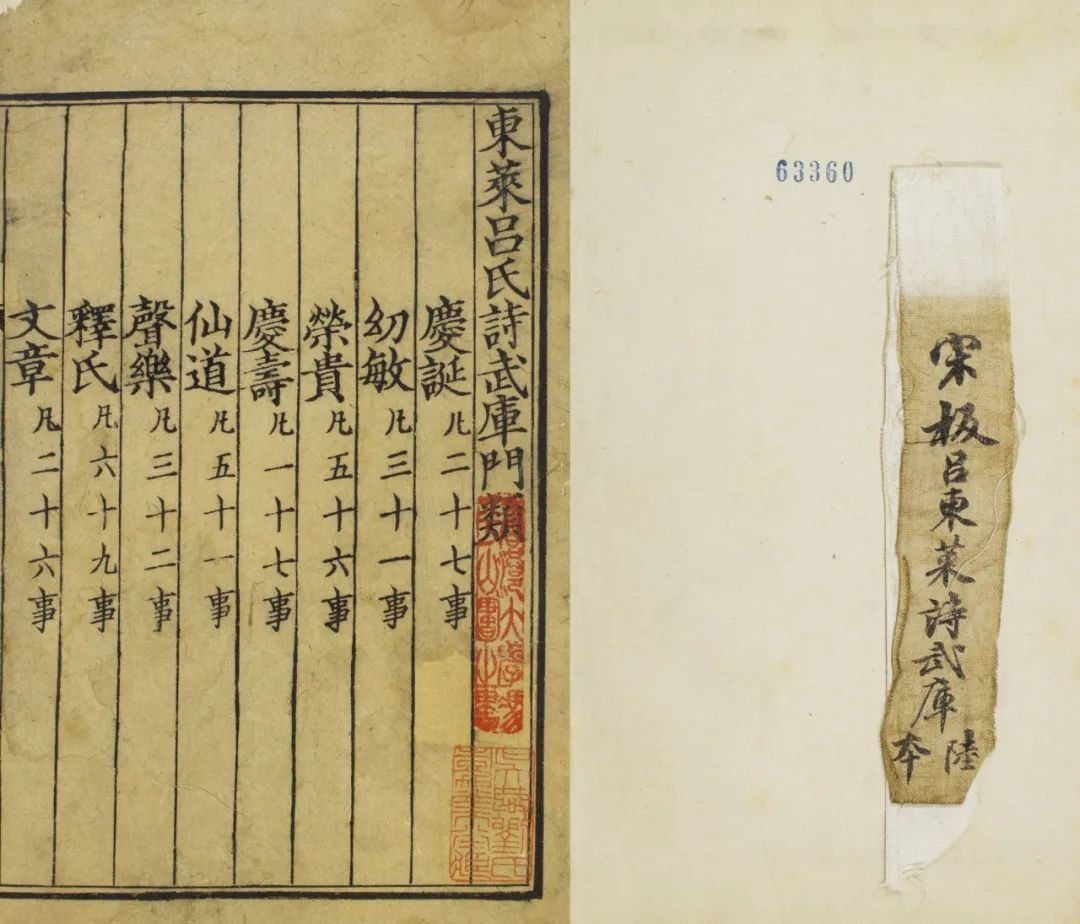 東萊呂氏詩武庫門類
慶誕凡二十七事
幼敏凡三十一事
榮貴凡五十六事
慶壽凡一十七事
仙道凡五十一事
聲樂凡三十二事
釋氏凡六十九事
文章凡二十六事
63360
宋板呂東萊詩武庫
陸本